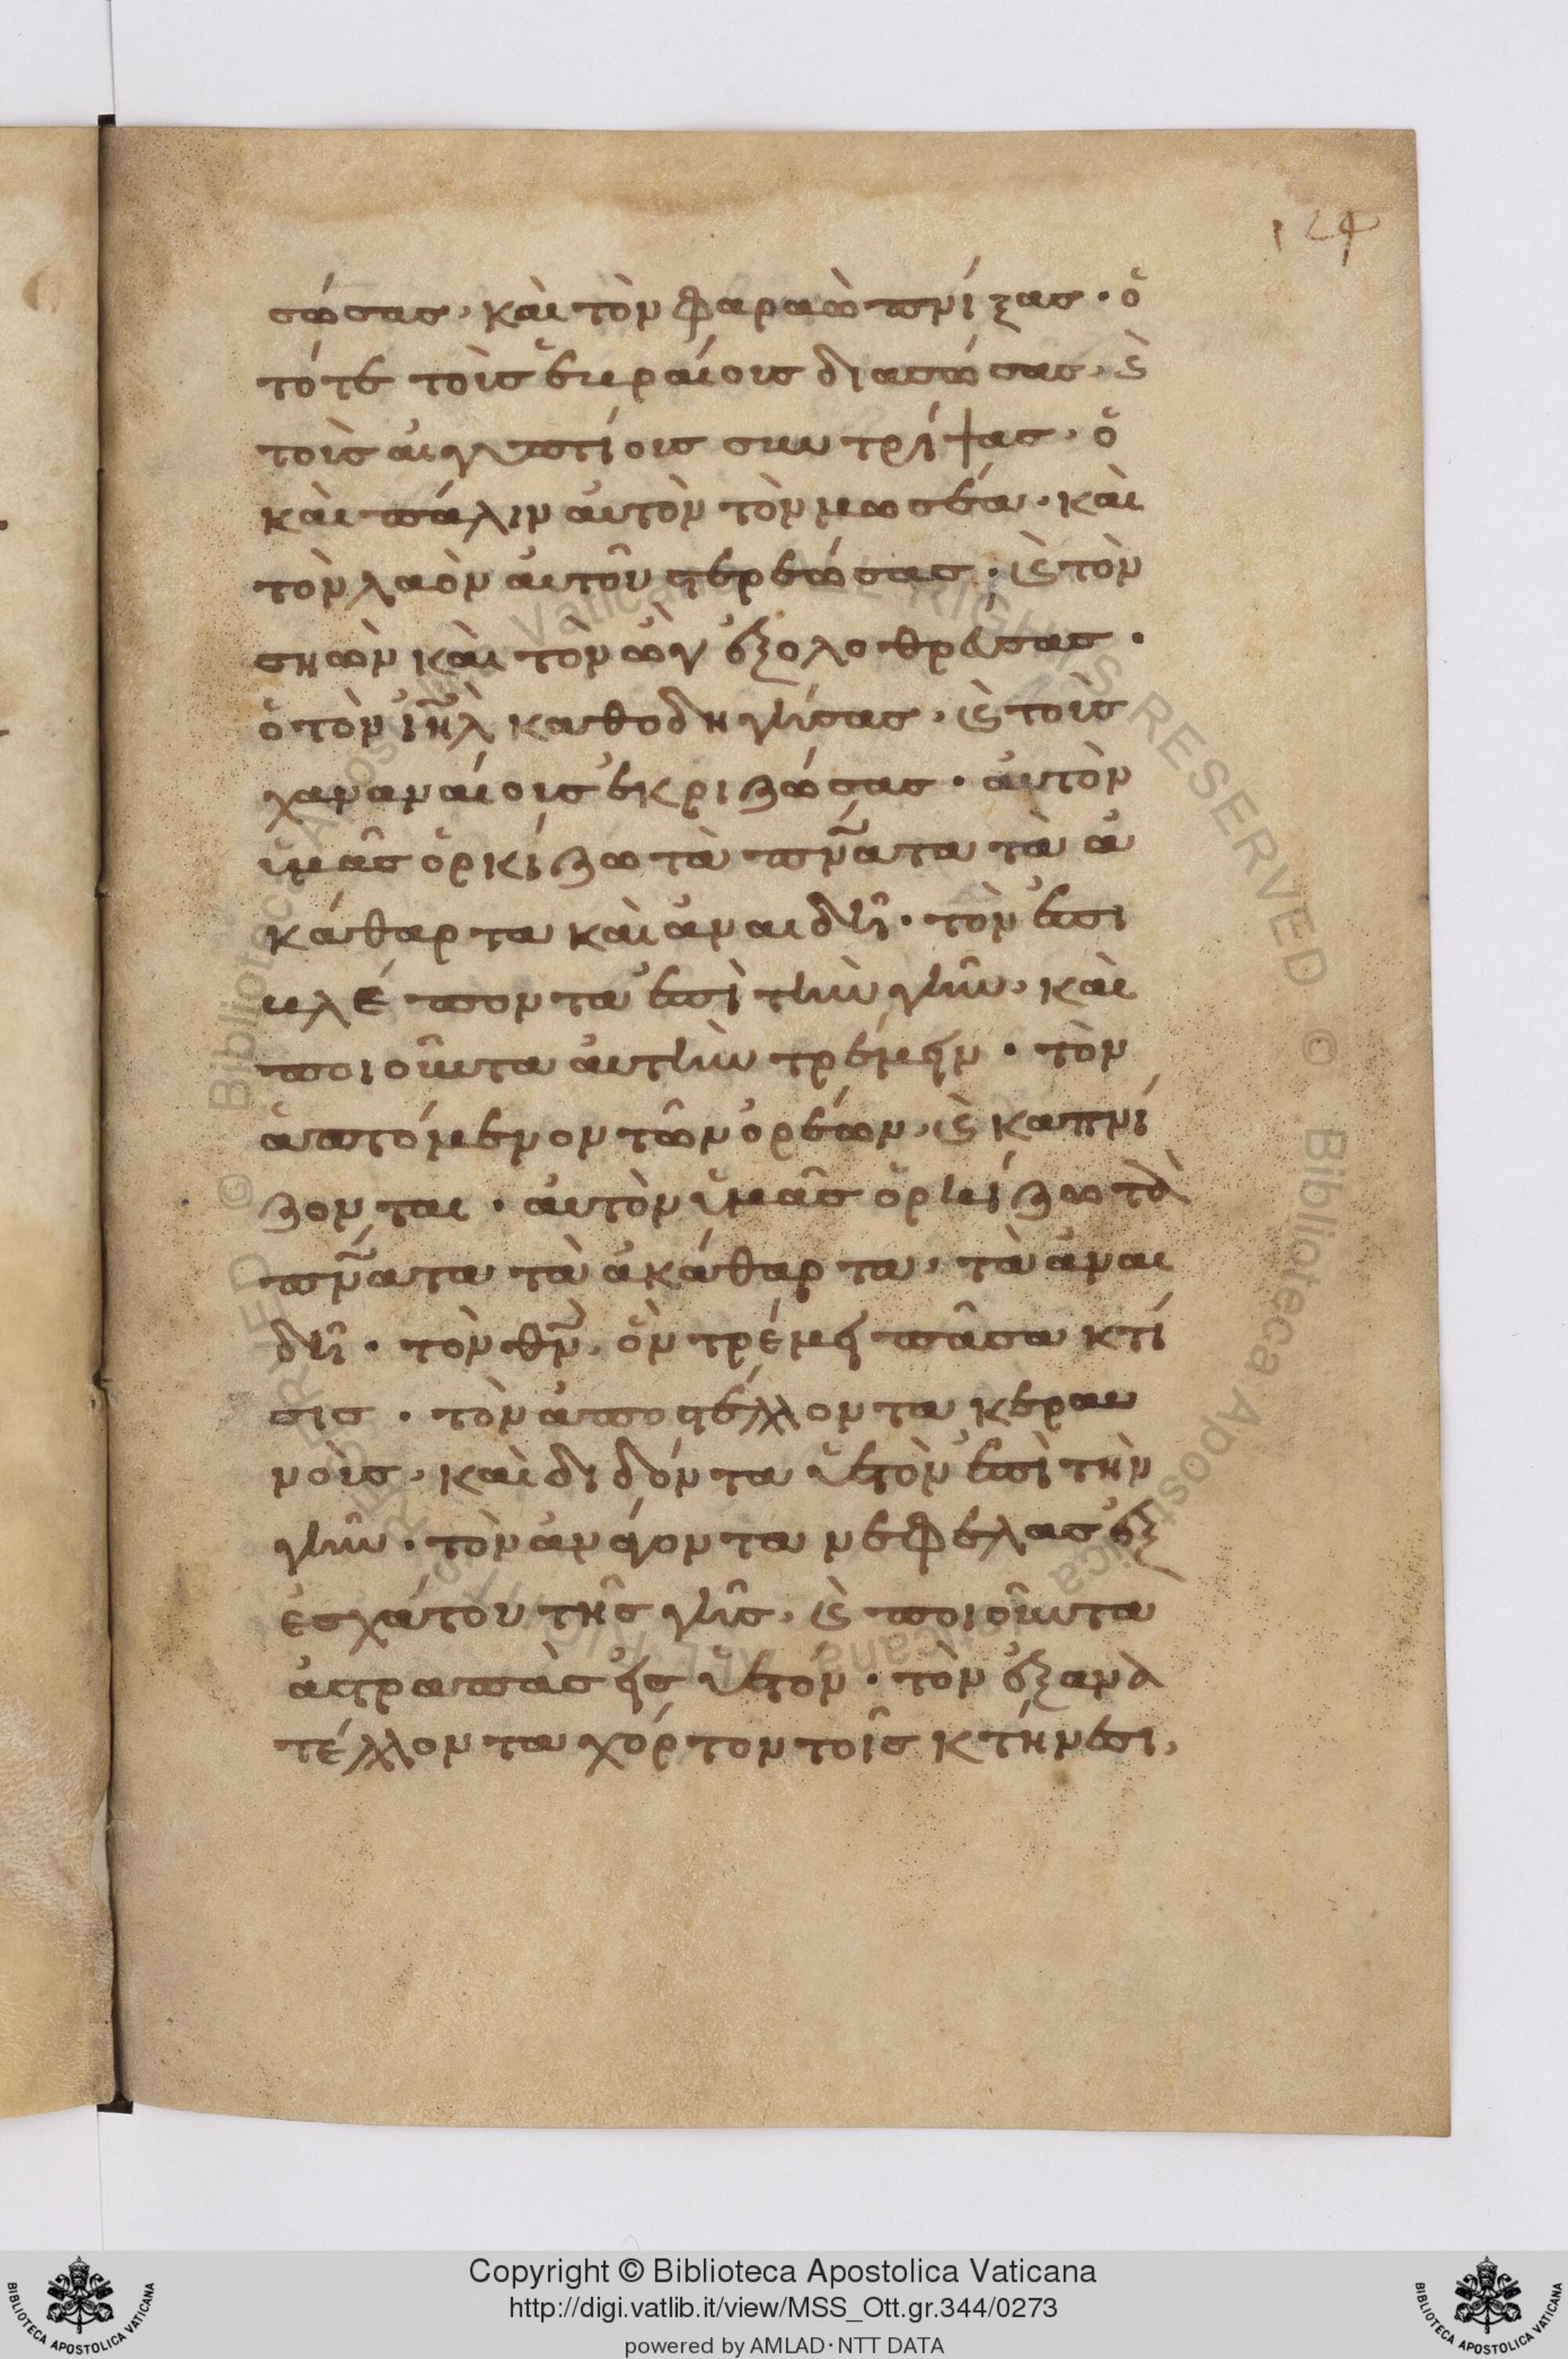 124
σώσας, καὶ τὸν φαραὼ πνίξας· ὁ
τότε τοῖς ἑβεραίοις διασώσας, ϗ
τοὶς αἰγυπτίοις συντρίψας· ὁ
καὶ πάλιν αὐτὸν τὸν μωσέα· καὶ
τὸν λαὸν αὐτοῦ στερεώσας· ϗ τὸν
σηὼν καὶ τὸν ὼγ ἐξολοθρεύσας·
ὁ τὸν ἰη̅λ̅ καθοδηγήσας, ϗ τοὶς
χαναναίοις ἐκριζώσας· αὐτὸν
ὑμᾶς ὁρκίζω τὰ πν̅ατα τὰ ἀ
κάθαρτα καὶ ἀναιδῆ· τὸν ἐπι
βλέποντα ἐπὶ τὴν γῆν, καὶ
ποιοῦντα αὐτὴν τρέμειν· τὸν
ἁπτόμενον τῶν ὀρέων, ϗ καπνί
ζονται· αὐτὸν ὑμᾶς ὁρκίζω τὰ
πν̅ατα τὰ ἀκάθαρτα, τὰ ἀναι
δῆ· τὸν θν̅, ὃν τρέμει πᾶσα κτί
σις· τὸν ἀποστέλλοντα κεραυ
νοὺς, καὶ διδόντα ὑετὸν ἐπὶ τὴν
γῆν· τὸν ἀνάγοντα νεφελας ἐξ
ἐσχάτου τῆς γῆς, ϗ ποιοῦντα
ἀστραπὰς εἰς ὑετόν· τὸν ἐξανα
τέλλοντα χόρτον τοῖς κτήνεσι,
Copyright © Biblioteca Apostolica Vaticana
http://digi.vatlib.it/view/MSS_Ott.gr.344/0273
powered by AMLAD · NTT DATA
BIBLIOTECA APOSTOLICA VATICANA
BIBLIOTECA APOSTOLICA VATICANA